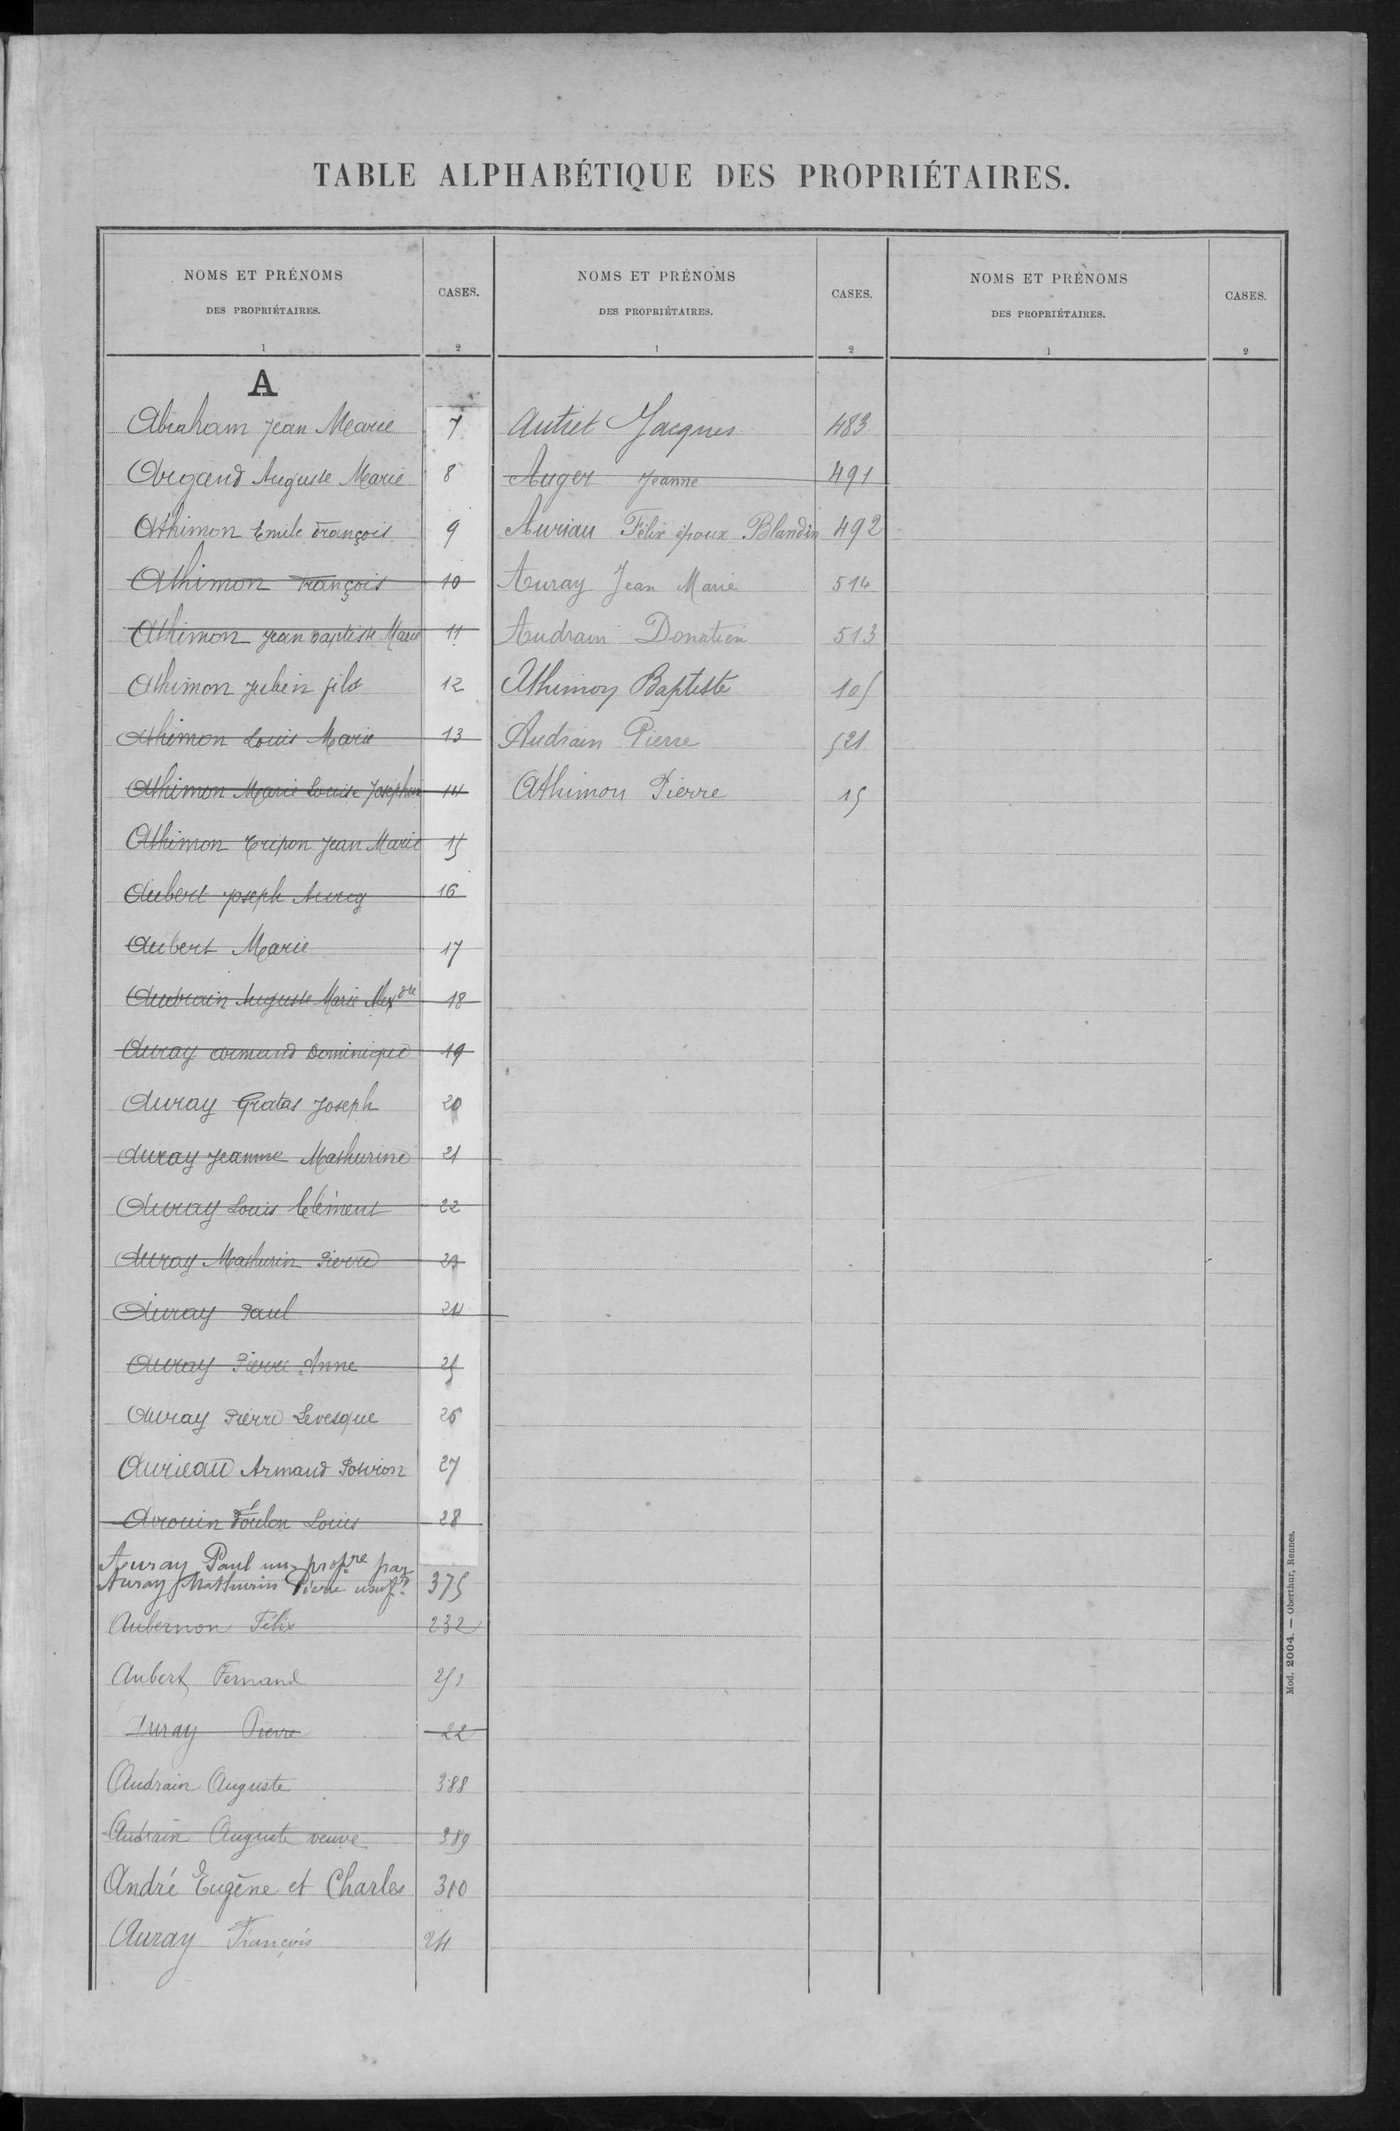 TABLE ALPHABÉTIQUE DES PROPRIÉTAIRES.
NOMS ET PRÉNOMS
DES PROPRIÉTAIRES.
1
CASES.
2
A
Abraham Jean Marie 7
Argand Auguste Marie 8
Athimon Emile François 9
Athimon François 10
Athimon Jean Baptiste Marie 11
Athimon Julien fils 12
Athimon Louis Marie 13
Athimon Marie Louise Joséphine 14
Athimon Tripon Jean Marie 15
Aubert Joseph Auray 16
Aubert Marie 17
Audrain Auguste Marie Alexdre 18
Auray Armand Dominique 19
Auray Gratas Joseph 20
Auray Jeanne Mathurine 21
Auray Louis Clément 22
Auray Mathurin Pierre 23
Auray Paul 24
Auray Pierre Anne 25
Auray Pierre Levesque 26
Aurieau Armand Poirion 27
Avrouin Foulon Louis 28
Auray Paul nu-propre par
Auray Mathurin Pierre usuf. 375
Aubernon Félix 232
Aubert Fernand 251
Auray Pierre 22
Audrain Auguste 388
Audrain Auguste veuve 389
André Eugène et Charles 310
Auray François 24
NOMS ET PRÉNOMS
DES PROPRIÉTAIRES.
1
CASES.
2
Autret Jacques 483
Auger Jeanne 491
Auriau Félix époux Blandin 492
Auray Jean Marie 514
Audrain Donatien 513
Athimon Baptiste 105
Audrain Pierre 521
Athimon Pierre 15
NOMS ET PRÉNOMS
DES PROPRIÉTAIRES.
1
CASES.
2
Mod. 2004. — Oberthur, Rennes.